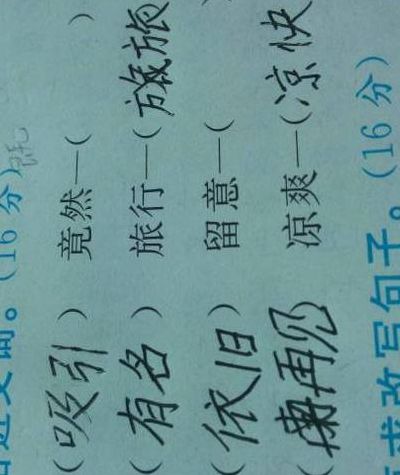 近义词。(16分)
(吸引) 竟然—( )
(有名) 旅行—(旅
(依旧) 留意—( )
(再见) 凉爽—(凉快
求改写句子。(16分)